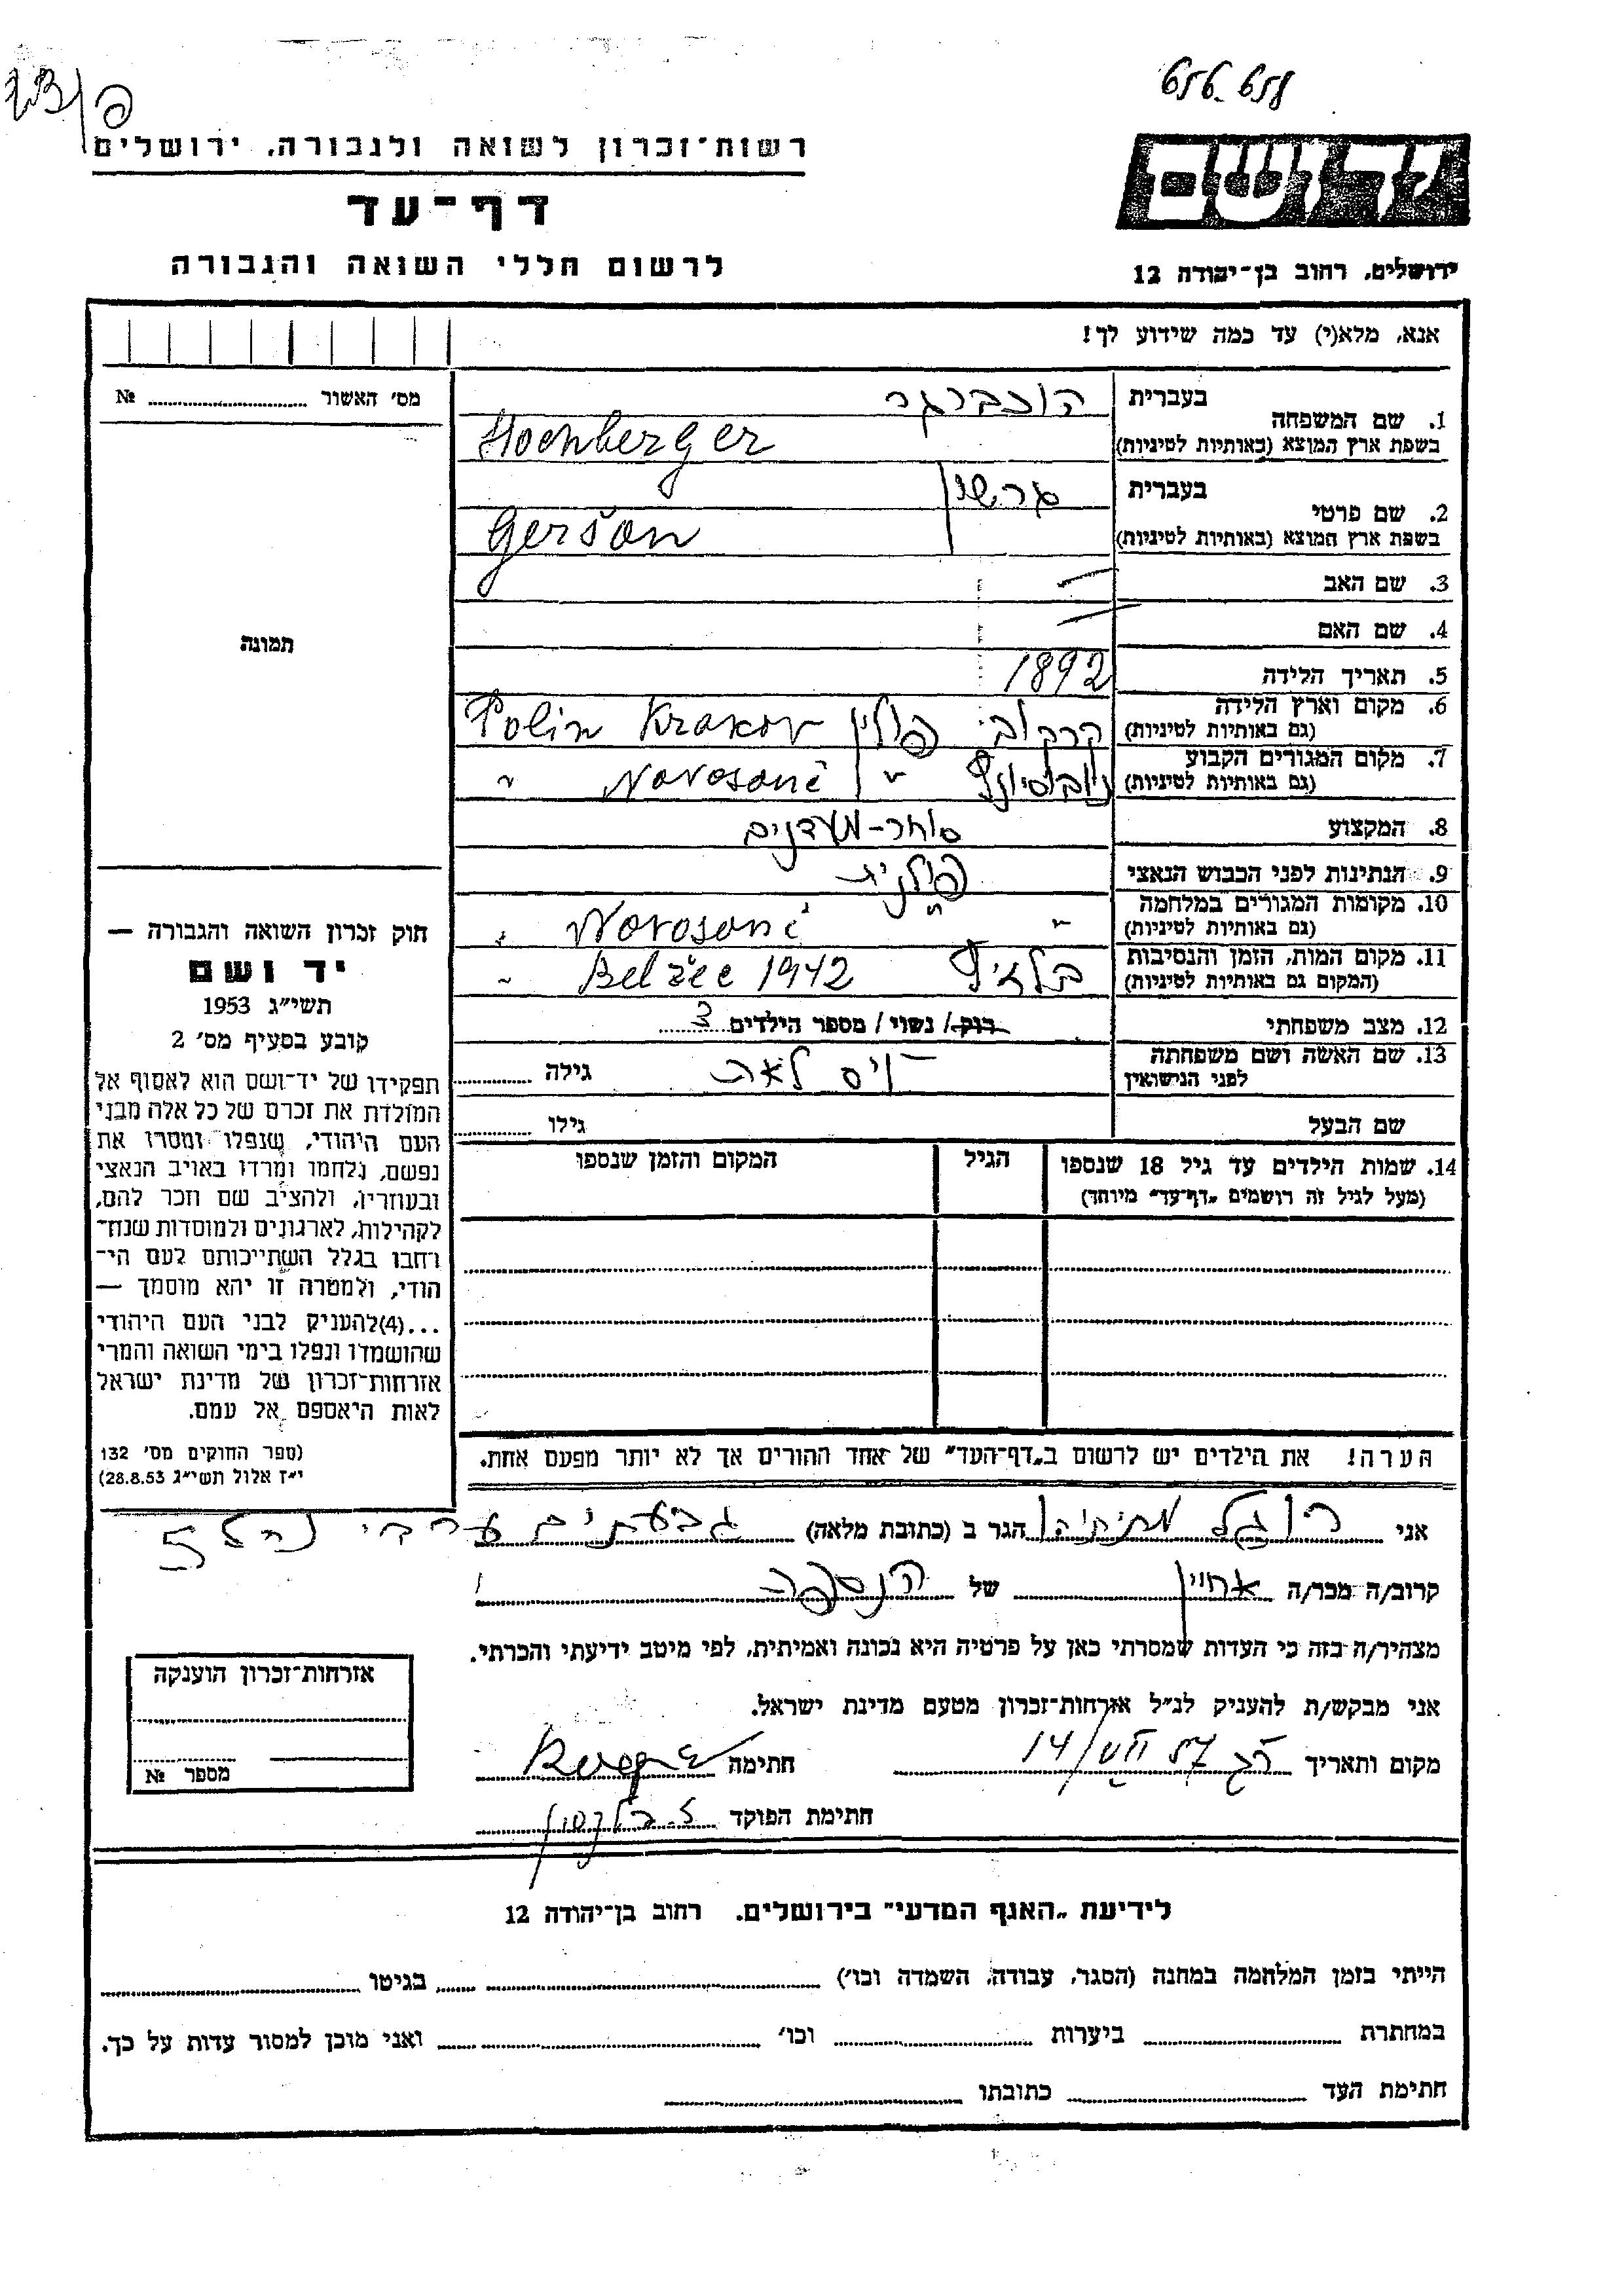 656-658
רשות־זכרון לשואה ולגבורה, ירושלים
דף־עד
לרשום חללי השואה והגבורה
ידושם
ירושלים, רחוב בן־יהודה 12
אנא, מלא(י) עד כמה שידוע לך!
מס׳ האשור № ........
תמונה
1. שם המשפחה בעברית הוכברגר
בשפת ארץ המוצא (באותיות לטיניות) Hochberger
2. שם פרטי בעברית גרשון
בשפת ארץ המוצא (באותיות לטיניות) Geršon
3. שם האב —
4. שם האם —
5. תאריך הלידה 1892
6. מקום וארץ הלידה (גם באותיות לטיניות) קרקוב פולין Polin Krakov
7. מקום המגורים הקבוע (גם באותיות לטיניות) " Novosonč "
8. המקצוע סוחר-מעדנים
9. הנתינות לפני הכבוש הנאצי פולנית
10. מקומות המגורים במלחמה (גם באותיות לטיניות) " " Novosonč "
11. מקום המות, הזמן והנסיבות (המקום גם באותיות לטיניות) Belžec 1942 "
12. מצב משפחתי רוק / נשוי / מספר הילדים 3
13. שם האשה ושם משפחתה לפני הנישואין לאה גילה ........
שם הבעל גילו ........
14. שמות הילדים עד גיל 18 שנספו (מעל לגיל זה רושמים „דף־עד״ מיוחד) הגיל המקום והזמן שנספו
חוק זכרון השואה והגבורה —
יד ושם
תשי״ג 1953
קובע בסעיף מס׳ 2
תפקידו של יד־ושם הוא לאסוף אל
המולדת את זכרם של כל אלה מבני
העם היהודי, שנפלו ומסרו את
נפשם, נלחמו ומרדו באויב הנאצי
ובעוזריו, ולהציב שם וזכר להם,
לקהילות, לארגונים ולמוסדות שנח־
רבו בגלל השתייכותם לעם הי־
הודי, ולמטרה זו יהא מוסמך —
...(4)להעניק לבני העם היהודי
שהושמדו ונפלו בימי השואה והמרי
אזרחות־זכרון של מדינת ישראל
לאות היאספם אל עמם.
(ספר החוקים מס׳ 132
י״ז אלול תשי״ג 28.8.53)
הערה! את הילדים יש לרשום ב„דף־העד״ של אחד ההורים אך לא יותר מפעם אחת.
אני מתיתיהו הגר ב (כתובת מלאה) גבעתיים ערבי נחל 5
קרוב/ה מכר/ה אחיין של הנספה
מצהיר/ה בזה כי העדות שמסרתי כאן על פרטיה היא נכונה ואמיתית, לפי מיטב ידיעתי והכרתי.
אני מבקש/ת להעניק לנ״ל אזרחות־זכרון מטעם מדינת ישראל.
מקום ותאריך רג 14/VII 57 חתימה
חתימת הפוקד
אזרחות־זכרון הוענקה
מספר №
לידיעת „האגף המדעי״ בירושלים, רחוב בן־יהודה 12
הייתי בזמן המלחמה במחנה (הסגר, עבודה, השמדה וכו׳) ........ בגיטו ........
במחתרת ........ ביערות ........ וכו׳ ........ ואני מוכן למסור עדות על כך.
חתימת העד ........ כתובתו ........